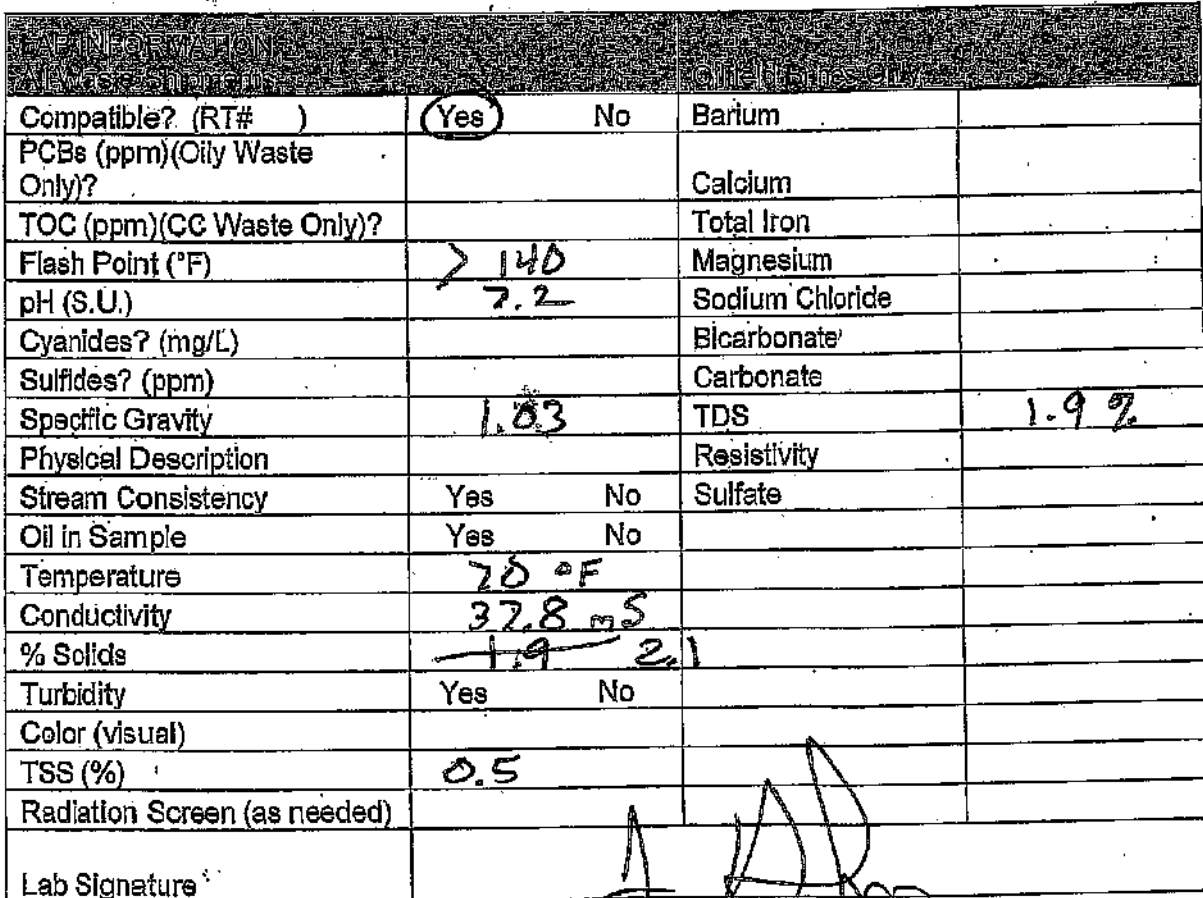 LAB INFORMATION
All Waste Shipments Oilfield Brines Only
Compatible? (RT# ) Yes No Barium
PCBs (ppm)(Oily Waste
Only)? Calcium
TOC (ppm)(CC Waste Only)? Total Iron
Flash Point (°F) > 140 Magnesium
pH (S.U.) 7.2 Sodium Chloride
Cyanides? (mg/L) Bicarbonate
Sulfides? (ppm) Carbonate
Specific Gravity 1.03 TDS 1.9 %
Physical Description Resistivity
Stream Consistency Yes No Sulfate
Oil in Sample Yes No
Temperature 70 °F
Conductivity 37.8 mS
% Solids 1.9 2.1
Turbidity Yes No
Color (visual)
TSS (%) 0.5
Radiation Screen (as needed)
Lab Signature